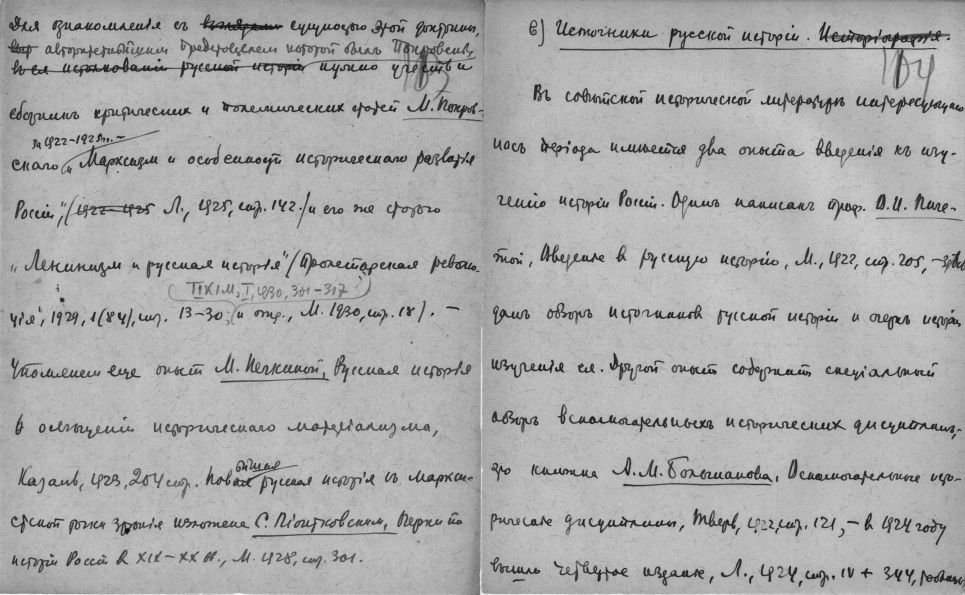 Для ознакомленія съ взглядами сущностью этой доктрины,
авторитетнѣйшимъ представителемъ которой былъ Покровскій,
въ ея истолкованіи русской исторіи нужно учесть и
103
сборникъ критическихъ и полемическихъ статей М. Покров-
за 1922–1925 гг. –
скаго „Марксизм и особенности историческаго развитія
Россіи", (1922–1925 Л., 1925, стр. 142.) и его же статью
„Ленинизм и русская исторія" (Пролетарская револю-
I, 1930, 301–317
ція", 1929, 1(84), стр. 13–30, и отд., М. 1930, стр. 18). –
Упомянем еще опыт М. Нечкиной, Русская исторія
в освѣщеніи историческаго матеріализма,
Казань, 1923, 204 стр. Новая русская исторія съ маркси-
стской точки зрѣнія изложена С. Піонтковскимъ, Очерки по
исторіи Россіи в XIX–XX вв., М. 1928, стр. 301.
6) Источники русской исторіи. Исторіографія.
104
Въ совѣтской исторической литературѣ интересующаго
насъ періода имѣется два опыта введенія къ изу-
ченію исторіи Россіи. Один написанъ проф. В. И. Пиче-
той, Введение в русскую исторію, М., 1922, стр. 205, –
данъ обзоръ источников русской исторіи и очеркъ исторіи
изученія ея. Другой опыт содержит спеціальный
обзоръ вспомогательныхъ историческихъ дисциплинъ,
это книжка А. М. Большакова, Вспомогательные исто-
рическіе дисциплины, Тверь, 1922, стр. 121, – в 1924 году
вышло четвертое изданіе, Л., 1924, стр. IV + 344,